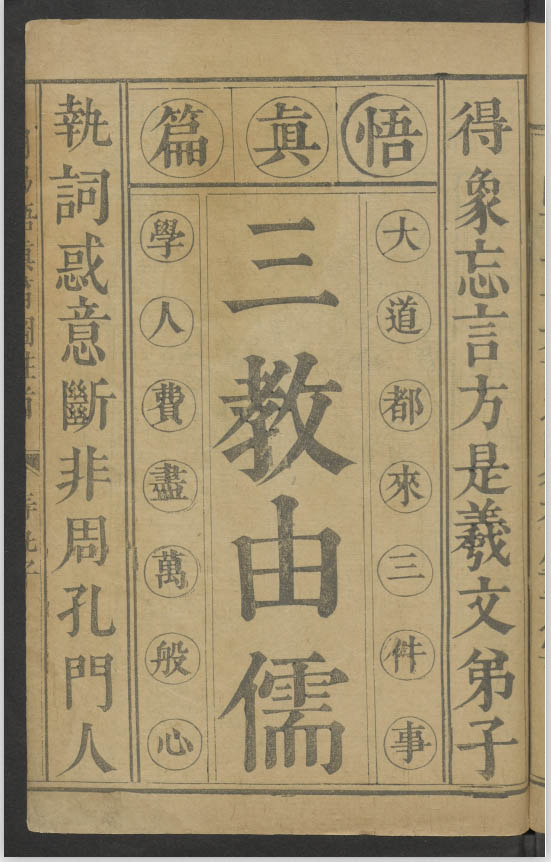 得象忘言方是羲文弟子
悟眞篇
大道都來三件事
三教由儒
學人費盡萬般心
執詞惑意斷非周孔門人